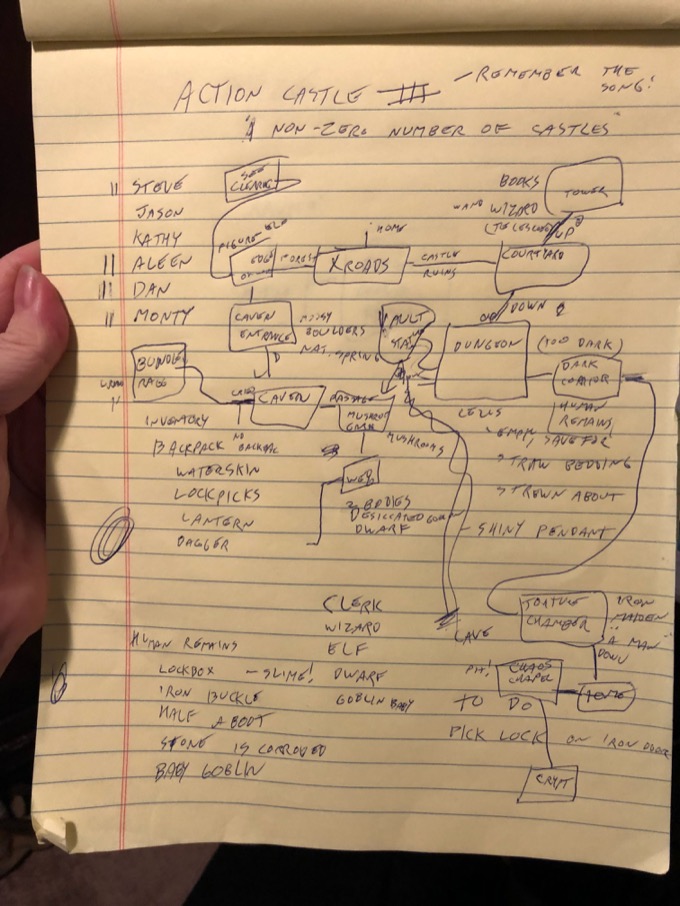 ACTION CASTLE III
- REMEMBER THE SONG!
"A NON-ZERO NUMBER OF CASTLES"
STEVE
JASON
KATHY
ALEEN
DAN
MONTY
BOOKS
WAND WIZARD
(TELESCOPE)
TOWER
UP
HOME
EDGE OF
FOREST
XROADS
CASTLE
RUINS
COURTYARD
DOWN
CAVERN
ENTRANCE
MOSSY
BOULDERS
NAT. SPRING
D
VAULT
DUNGEON
(TOO DARK)
DARK
CORRIDOR
BUNDLE
RAGS
CAVERN
PASSAGE
MUSHROOMS
CELLS
"EMPTY, SAVE FOR
STRAW BEDDING
STREWN ABOUT
HUMAN
REMAINS
INVENTORY
BACKPACK
NO BACKPACK
WATERSKIN
LOCKPICKS
LANTERN
DAGGER
WEB
2 BODIES
DESICCATED GOBLIN
DWARF
- SHINY PENDANT
CLERK
WIZARD
ELF
DWARF
GOBLIN BABY
CAVE
TORTURE
CHAMBER
IRON
MAIDEN
"A MAN"
DOWN
HUMAN REMAINS
LOCKBOX - SLIME!
IRON BUCKLE
HALF A BOOT
STONE IS CORRODED
BABY GOBLIN
CHAOS
CHAPEL
TOMB
TO DO
PICK LOCK ON IRON DOOR
CRYPT